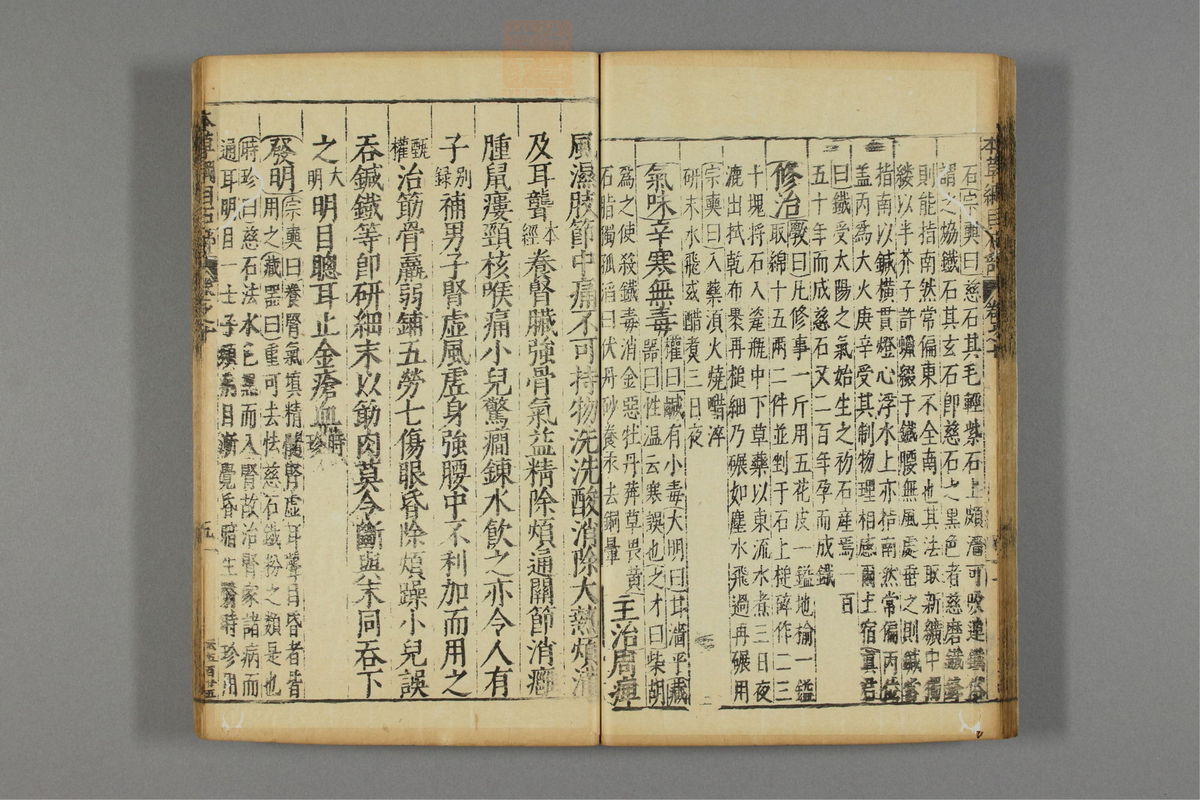 本草綱目石部 卷之十
石宗奭曰慈石其毛輕紫石上頗濇可吸連鐵
謂之協鐵石其玄石即慈石之黑色者慈磨鐵
則能指南然常偏東不全南也其法取新纊中獨
縷以半芥子許蠟綴于鐵腰無風處垂之則鍼常
指南以鍼橫貫燈心浮水上亦指南然常偏丙位
蓋丙為大火庚辛受其制物理相感爾土宿真君
曰鐵受太陽之氣始生之初石產焉一百
五十年而成慈石又二百年孕而成鐵
修治斆曰凡修事一斤用五花皮一鎰地榆一鎰
取綿十五兩二件並剉于石上槌碎作二三
十塊將石入瓷瓶中下草藥以東流水煮三日夜
漉出拭乾布裹再槌細乃碾如塵水飛過再碾用
宗奭曰入藥須火燒醋淬
研末水飛或醋煮三日夜
氣味辛寒無毒權曰鹹有小毒大明曰甘濇平藏
器曰性温云寒誤也之才曰柴胡
為之使殺鐵毒消金惡牡丹莽草畏黃
石脂獨孤滔曰伏丹砂養汞去銅暈
主治周痺
風濕肢節中痛不可持物洗洗酸消除大熱煩滿
及耳聾本經養腎臟強骨氣益精除煩通關節消癰
腫鼠瘻頸核喉痛小兒驚癇鍊水飲之亦令人有
子别録補男子腎虚風虚身強腰中不利加而用之
甄權治筋骨羸弱補五勞七傷眼昏除煩躁小兒誤
吞鍼鐵等即研細末以筋肉莫令斷與末同吞下
之大明明目聰耳止金瘡血時珍
發明宗奭曰養腎氣填精髓腎虚耳聾目昏者皆
用之藏器曰重可去怯慈石鐵粉之類是也
時珍曰慈石法水色黑而入腎故治腎家諸病而
通耳明目一士子頻病目漸覺昏暗生翳時珍用
本草綱目石部 卷之十
五